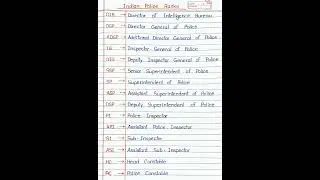 Indian Police Ranks
DIB → Director of Intelligence Bureau
DGP → Director General of Police
ADGP → Additional Director General of Police
IG → Inspector General of Police
DIG → Deputy Inspector General of Police
SSP → Senior Superintendent of Police
SP → Superintendent of Police
ASP → Assistant Superintendent of Police
DSP → Deputy Superintendent of Police
PI → Police Inspector
API → Assistant Police Inspector
SI → Sub-Inspector
ASI → Assistant Sub-Inspector
HC → Head Constable
PC → Police Constable